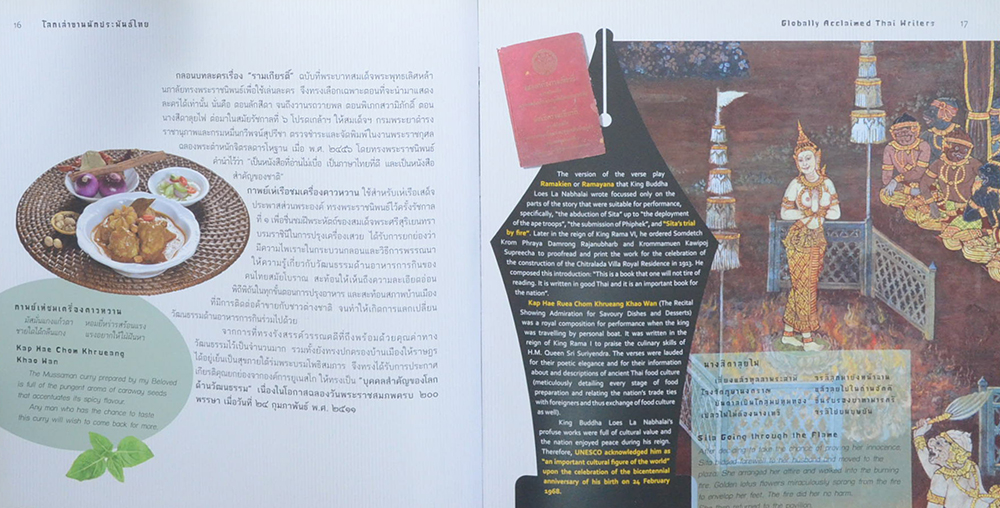 16
โลกเล่าขานนักประพันธ์ไทย
กลอนบทละครเรื่อง "รามเกียรติ์" ฉบับที่พระบาทสมเด็จพระพุทธเลิศหล้า
นภาลัยทรงพระราชนิพนธ์เพื่อใช้เล่นละคร จึงทรงเลือกเฉพาะตอนที่จะนำมาแสดง
ละครได้เท่านั้น นั่นคือ ตอนลักสีดา จนถึงวานรถวายพล ตอนพิเภกสวามิภักดิ์ ตอน
นางสีดาลุยไฟ ต่อมาในสมัยรัชกาลที่ ๖ โปรดเกล้าฯ ให้สมเด็จฯ กรมพระยาดำรง
ราชานุภาพและกรมหมื่นกวีพจน์สุปรีชา ตรวจชำระและจัดพิมพ์ในงานพระราชกุศล
ฉลองพระตำหนักจิตรลดารโหฐาน เมื่อ พ.ศ. ๒๔๕๖ โดยทรงพระราชนิพนธ์
คำนำไว้ว่า "เป็นหนังสือที่อ่านไม่เบื่อ เป็นภาษาไทยที่ดี และเป็นหนังสือ
สำคัญของชาติ"
กาพย์เห่เรือชมเครื่องคาวหวาน ใช้สำหรับเห่เรือเสด็จ
ประพาสส่วนพระองค์ ทรงพระราชนิพนธ์ไว้ครั้งรัชกาล
ที่ ๑ เพื่อชื่นชมฝีพระหัตถ์ของสมเด็จพระศรีสุริเยนทรา
บรมราชินีในการปรุงเครื่องเสวย ได้รับการยกย่องว่า
มีความไพเราะในกระบวนกลอนและวิธีการพรรณนา
ให้ความรู้เกี่ยวกับวัฒนธรรมด้านอาหารการกินของ
คนไทยสมัยโบราณ สะท้อนให้เห็นถึงความละเอียดอ่อน
พิถีพิถันในทุกขั้นตอนการปรุงอาหาร และสะท้อนสภาพบ้านเมือง
ที่มีการติดต่อค้าขายกับชาวต่างชาติ จนทำให้เกิดการแลกเปลี่ยน
วัฒนธรรมด้านอาหารการกินร่วมไปด้วย
จากการที่ทรงรังสรรค์วรรณคดีที่ถึงพร้อมด้วยคุณค่าทาง
วัฒนธรรมไว้เป็นจำนวนมาก รวมทั้งยังทรงปกครองบ้านเมืองให้ราษฎร
ได้อยู่เย็นเป็นสุขภายใต้ร่มพระบรมโพธิสมภาร จึงทรงได้รับการประกาศ
เกียรติคุณยกย่องจากองค์การยูเนสโก ให้ทรงเป็น "บุคคลสำคัญของโลก
ด้านวัฒนธรรม" เนื่องในโอกาสฉลองวันพระราชสมภพครบ ๒๐๐
พรรษา เมื่อวันที่ ๒๔ กุมภาพันธ์ พ.ศ. ๒๕๑๑
กาพย์เห่ชมเครื่องคาวหวาน
มัสมั่นแกงแก้วตา หอมยี่หร่ารสร้อนแรง
ชายใดได้กลืนแกง แรงอยากให้ใฝ่ฝันหา
Kap Hae Chom Khrueang
Khao Wan
The Mussaman curry prepared by my Beloved
is full of the pungent aroma of caraway seeds
that accentuates its spicy flavour.
Any man who has the chance to taste
this curry will wish to come back for more.
Globally Acclaimed Thai Writers
17
The version of the verse play
Ramakien or Ramayana that King Buddha
Loes La Nabhalai wrote focussed only on the
parts of the story that were suitable for performance,
specifically, "the abduction of Sita" up to "the deployment
of the ape troops", "the submission of Phiphek", and "Sita's trial
by fire". Later in the reign of King Rama VI, he ordered Somdetch
Krom Phraya Damrong Rajanubharb and Krommamuen Kawipoj
Supreecha to proofread and print the work for the celebration of
the construction of the Chitralada Villa Royal Residence in 1913. He
composed this introduction: "This is a book that one will not tire of
reading. It is written in good Thai and it is an important book for
the nation".
Kap Hae Ruea Chom Khrueang Khao Wan (The Recital
Showing Admiration for Savoury Dishes and Desserts)
was a royal composition for performance when the king
was travelling by personal boat. It was written in the
reign of King Rama I to praise the culinary skills of
H.M. Queen Sri Suriyendra. The verses were lauded
for their poetic elegance and for their information
about and descriptions of ancient Thai food culture
(meticulously detailing every stage of food
preparation and relating the nation's trade ties
with foreigners and thus exchange of food culture
as well).
King Buddha Loes La Nabhalai's
profuse works were full of cultural value and
the nation enjoyed peace during his reign.
Therefore, UNESCO acknowledged him as
"an important cultural figure of the world"
upon the celebration of the bicentennial
anniversary of his birth on 24 February
1968.
นางสีดาลุยไฟ
Sita Going through the Flame
After deciding to take the chance of proving her innocence
Sita bidded farewell to her husband and moved to the
plaza. She arranged her attire and walked into the burning
fire. Golden lotus flowers miraculously sprang from the fire
to envelop her feet. The fire did her no harm.